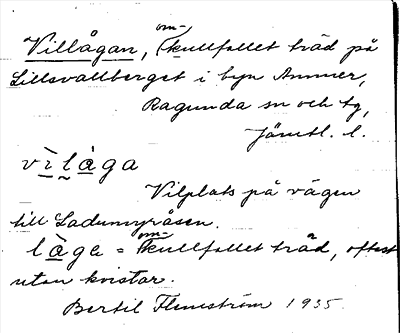 Villågan, om-kullfallet träd på
Lillsvallberget i byn Ammer,
Ragunda sn och tg,
Jämtl. l.
vìlàga
Vilplats på vägen
till Ladumyråsen.
làga = om-kullfallet träd, oftast
utan kvistar.
Bertil Flemström 1935.